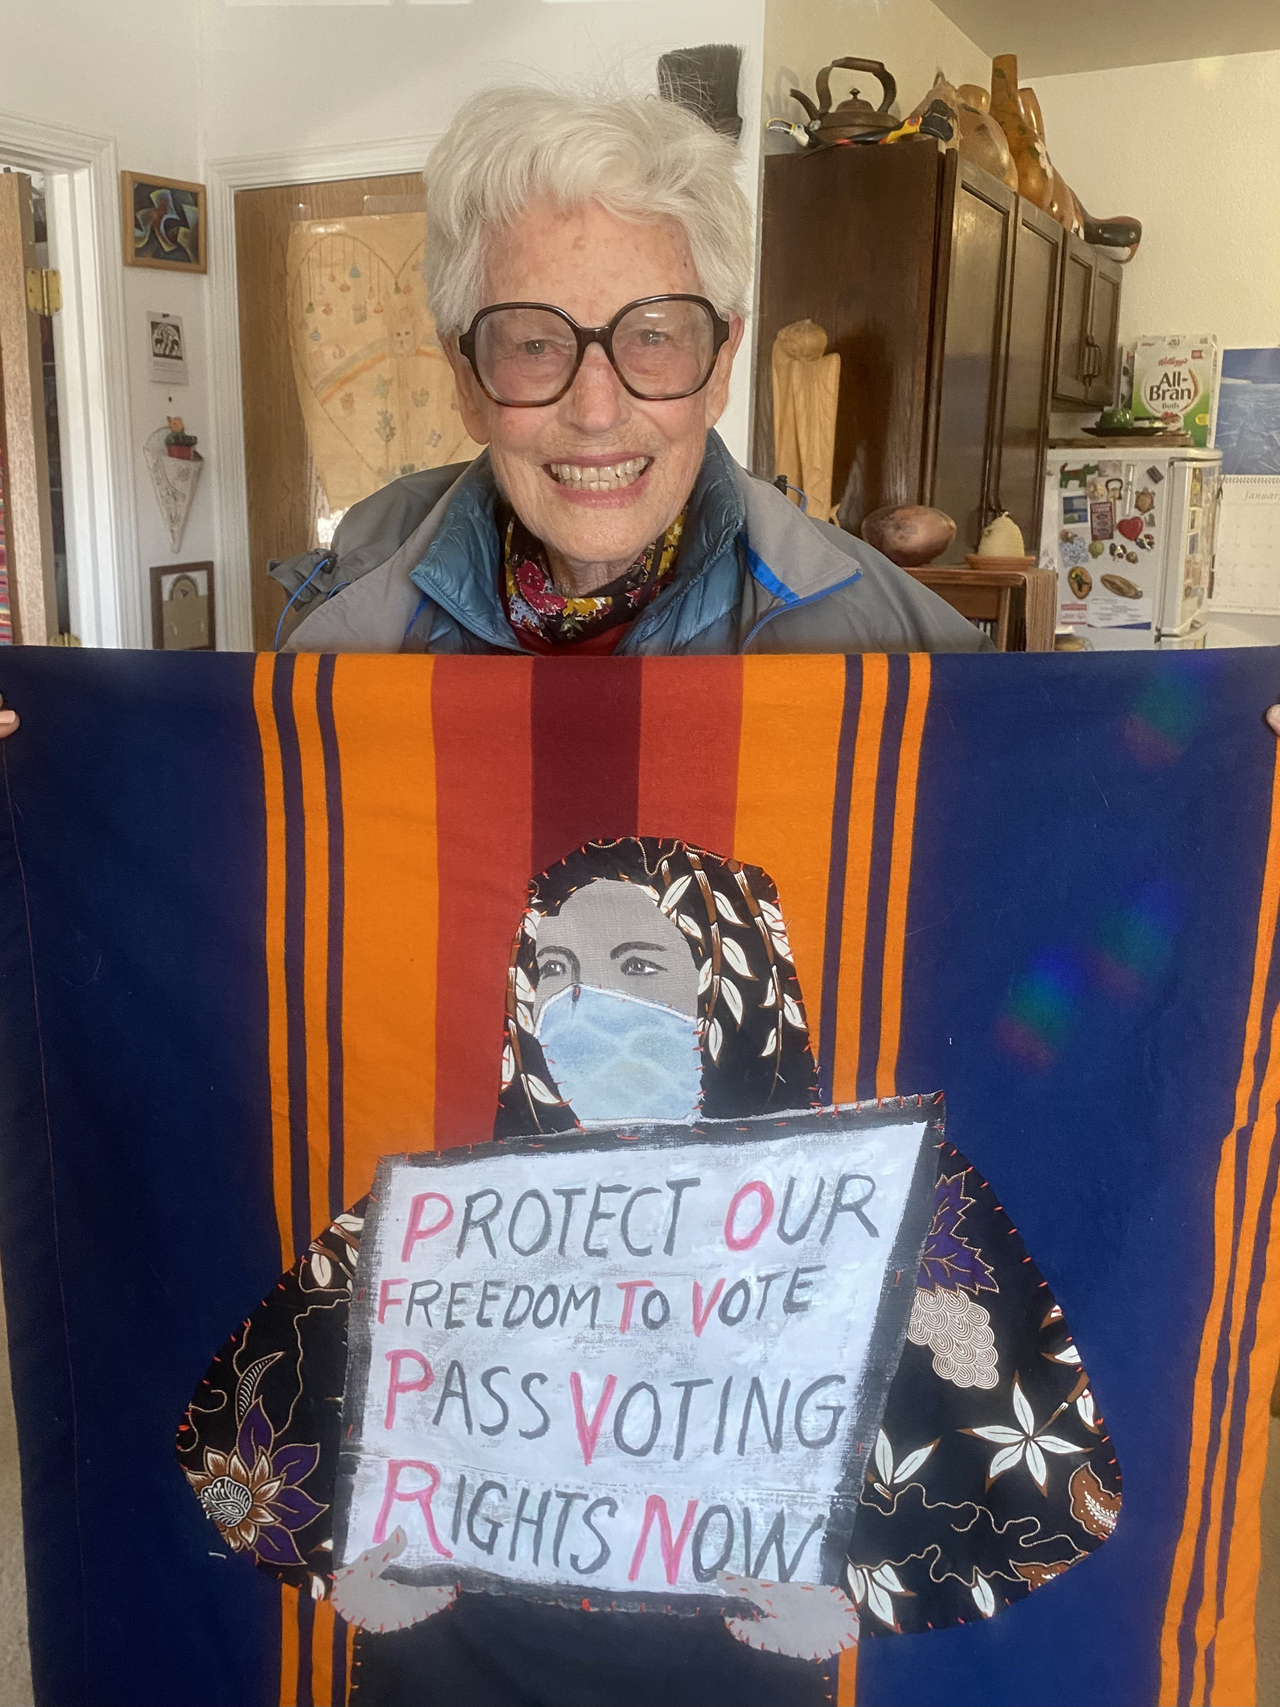 Kellogg's
All-
Bran
Buds
January
PROTECT OUR
FREEDOM TO VOTE
PASS VOTING
RIGHTS NOW